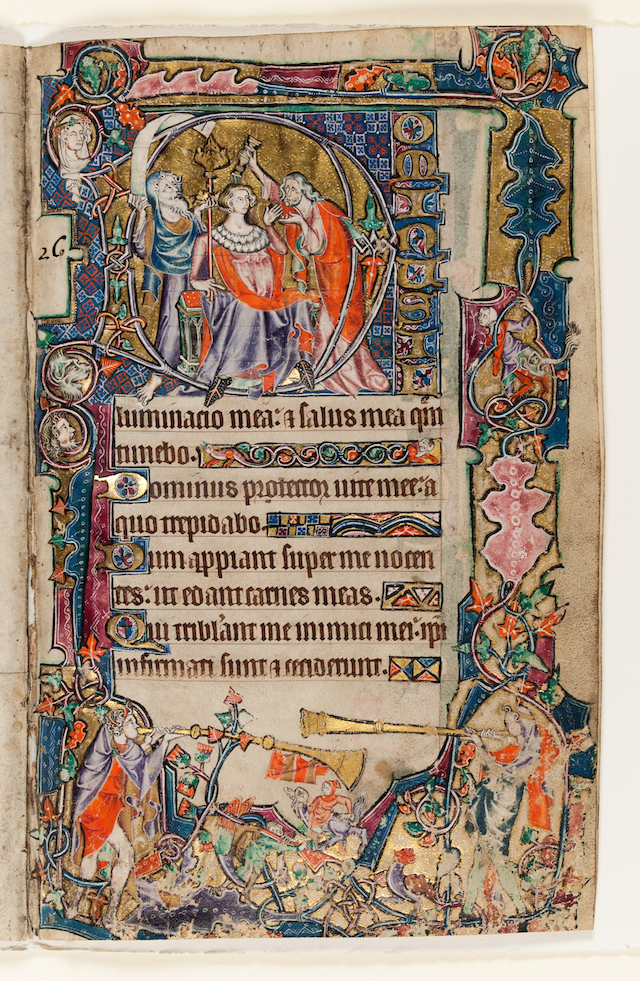 26
D
luminacio mea: ⁊ salus mea quē
timebo.
Dominus protector uite mee: a
quo trepidabo.
Dum appiant super me nocen
tes: ut edant carnes meas.
Qui tribl'ant me inimici mei: ipi
infirmati sunt ⁊ ceciderunt.